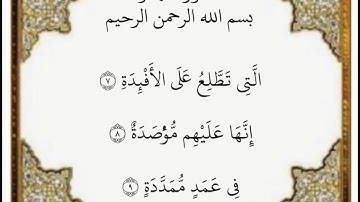 بسم الله الرحمن الرحيم
الَّتِي تَطَّلِعُ عَلَى الأَفْئِدَةِ ٧
إِنَّهَا عَلَيْهِم مُّؤْصَدَةٌ ٨
فِي عَمَدٍ مُّمَدَّدَةٍ ٩